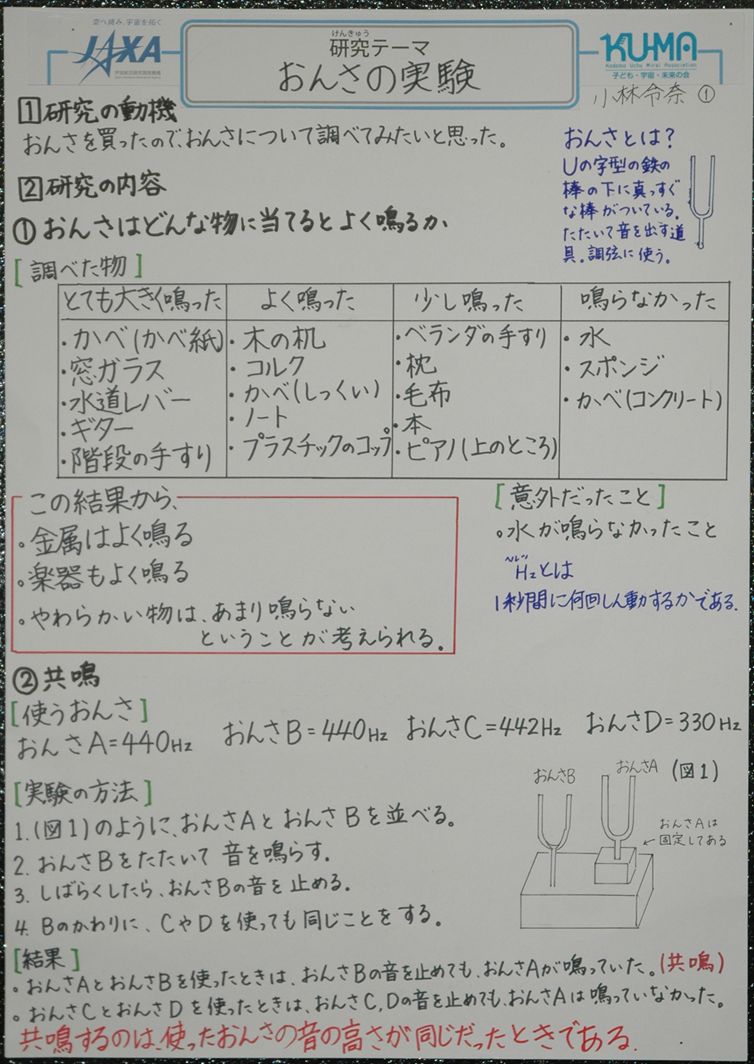 空へ挑み、宇宙を拓く
JAXA
宇宙航空研究開発機構
けんきゅう
研究テーマ
おんさの実験
KU-MA
Kodomo Uchu Mirai Association
子ども・宇宙・未来の会
小林令奈 ①
1 研究の動機
おんさを買ったので、おんさについて調べてみたいと思った。
おんさとは?
Uの字型の鉄の
棒の下に真っすぐ
な棒がついている。
たたいて音を出す道
具。調弦に使う。
2 研究の内容
① おんさはどんな物に当てるとよく鳴るか
[調べた物]
とても大きく鳴った よく鳴った 少し鳴った 鳴らなかった
・かべ(かべ紙) ・木の机 ・ベランダの手すり ・水
・窓ガラス ・コルク ・枕 ・スポンジ
・水道レバー ・かべ(しっくい) ・毛布 ・かべ(コンクリート)
・ギター ・ノート ・本
・階段の手すり ・プラスチックのコップ ・ピアノ(上のところ)
この結果から、
・金属はよく鳴る
・楽器もよく鳴る
・やわらかい物は、あまり鳴らない
ということが考えられる。
[意外だったこと]
・水が鳴らなかったこと
ヘルツ
Hzとは
1秒間に何回しん動するかである。
② 共鳴
[使うおんさ]
おんさA=440Hz おんさB=440Hz おんさC=442Hz おんさD=330Hz
[実験の方法]
1.(図1)のように、おんさAとおんさBを並べる。
2. おんさBをたたいて 音を鳴らす。
3. しばらくしたら、おんさBの音を止める。
4. Bのかわりに、CやDを使っても同じことをする。
おんさB おんさA (図1)
おんさAは
固定してある
[結果]
・おんさAとおんさBを使ったときは、おんさBの音を止めても、おんさAが鳴っていた。(共鳴)
・おんさCとおんさDを使ったときは、おんさC,Dの音を止めても、おんさAは鳴っていなかった。
共鳴するのは、使ったおんさの音の高さが同じだったときである。